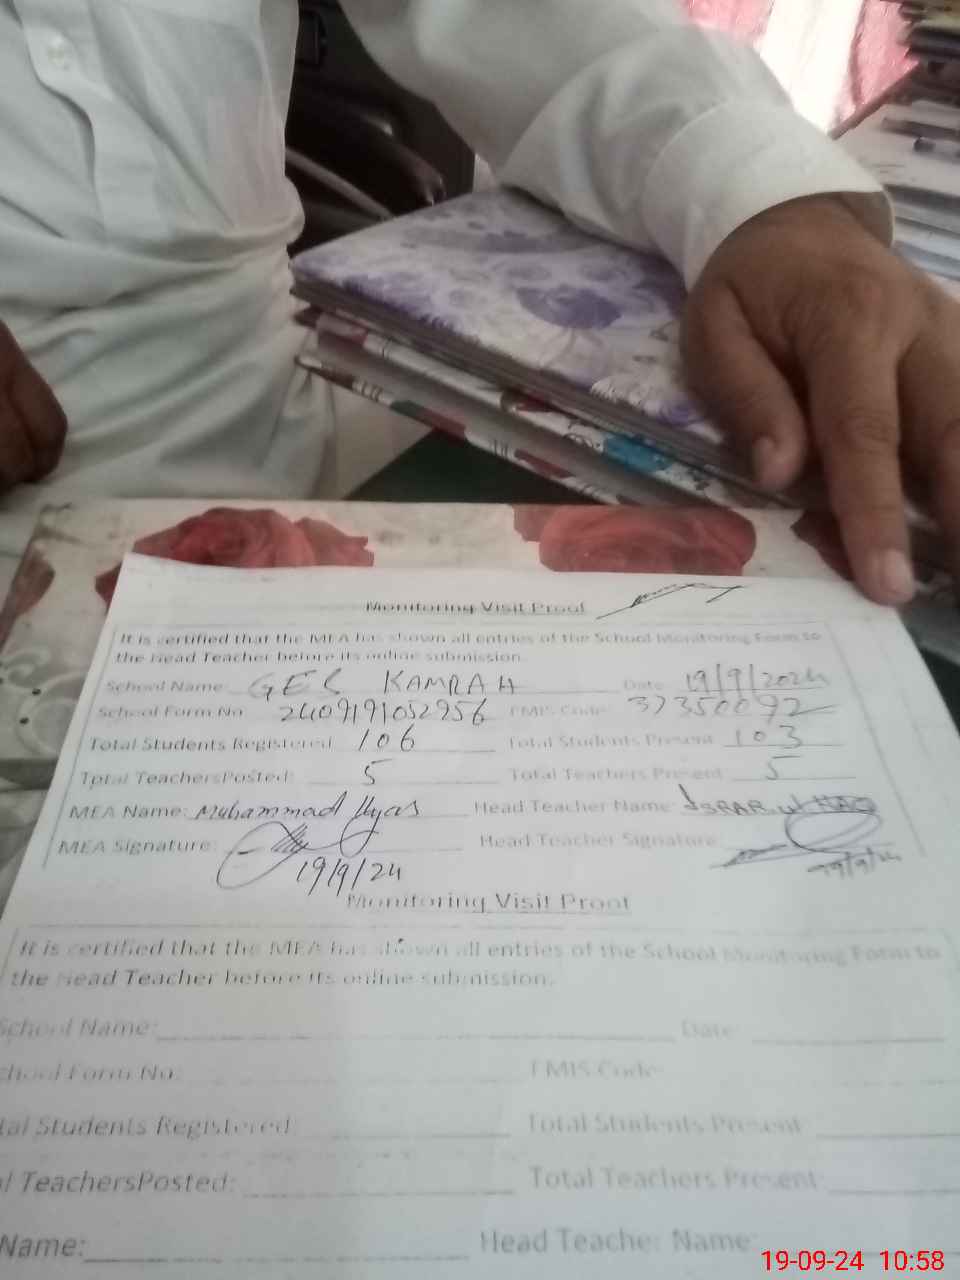 Monitoring Visit Proof
It is certified that the MEA has shown all entries of the School Monitoring Form to
the Head Teacher before its online submission.
School Name: GES KAMRAH Date 19/9/2024
School Form No 2409191052956 EMIS Code: 37350092
Total Students Registered 106 Total Students Present 103
Total TeachersPosted: 5 Total Teachers Present 5
MEA Name: Muhammad Ilyas Head Teacher Name: ISRAR ul HAQ
MEA Signature: Head Teacher Signature
19/9/24 19/9/24
Monitoring Visit Proof
It is certified that the MEA has shown all entries of the School Monitoring Form to
the Head Teacher before its online submission.
School Name: Date
chool Form No. EMIS Code
tal Students Registered Total Students Present
l TeachersPosted: Total Teachers Present
Name: Head Teacher Name:
19-09-24 10:58